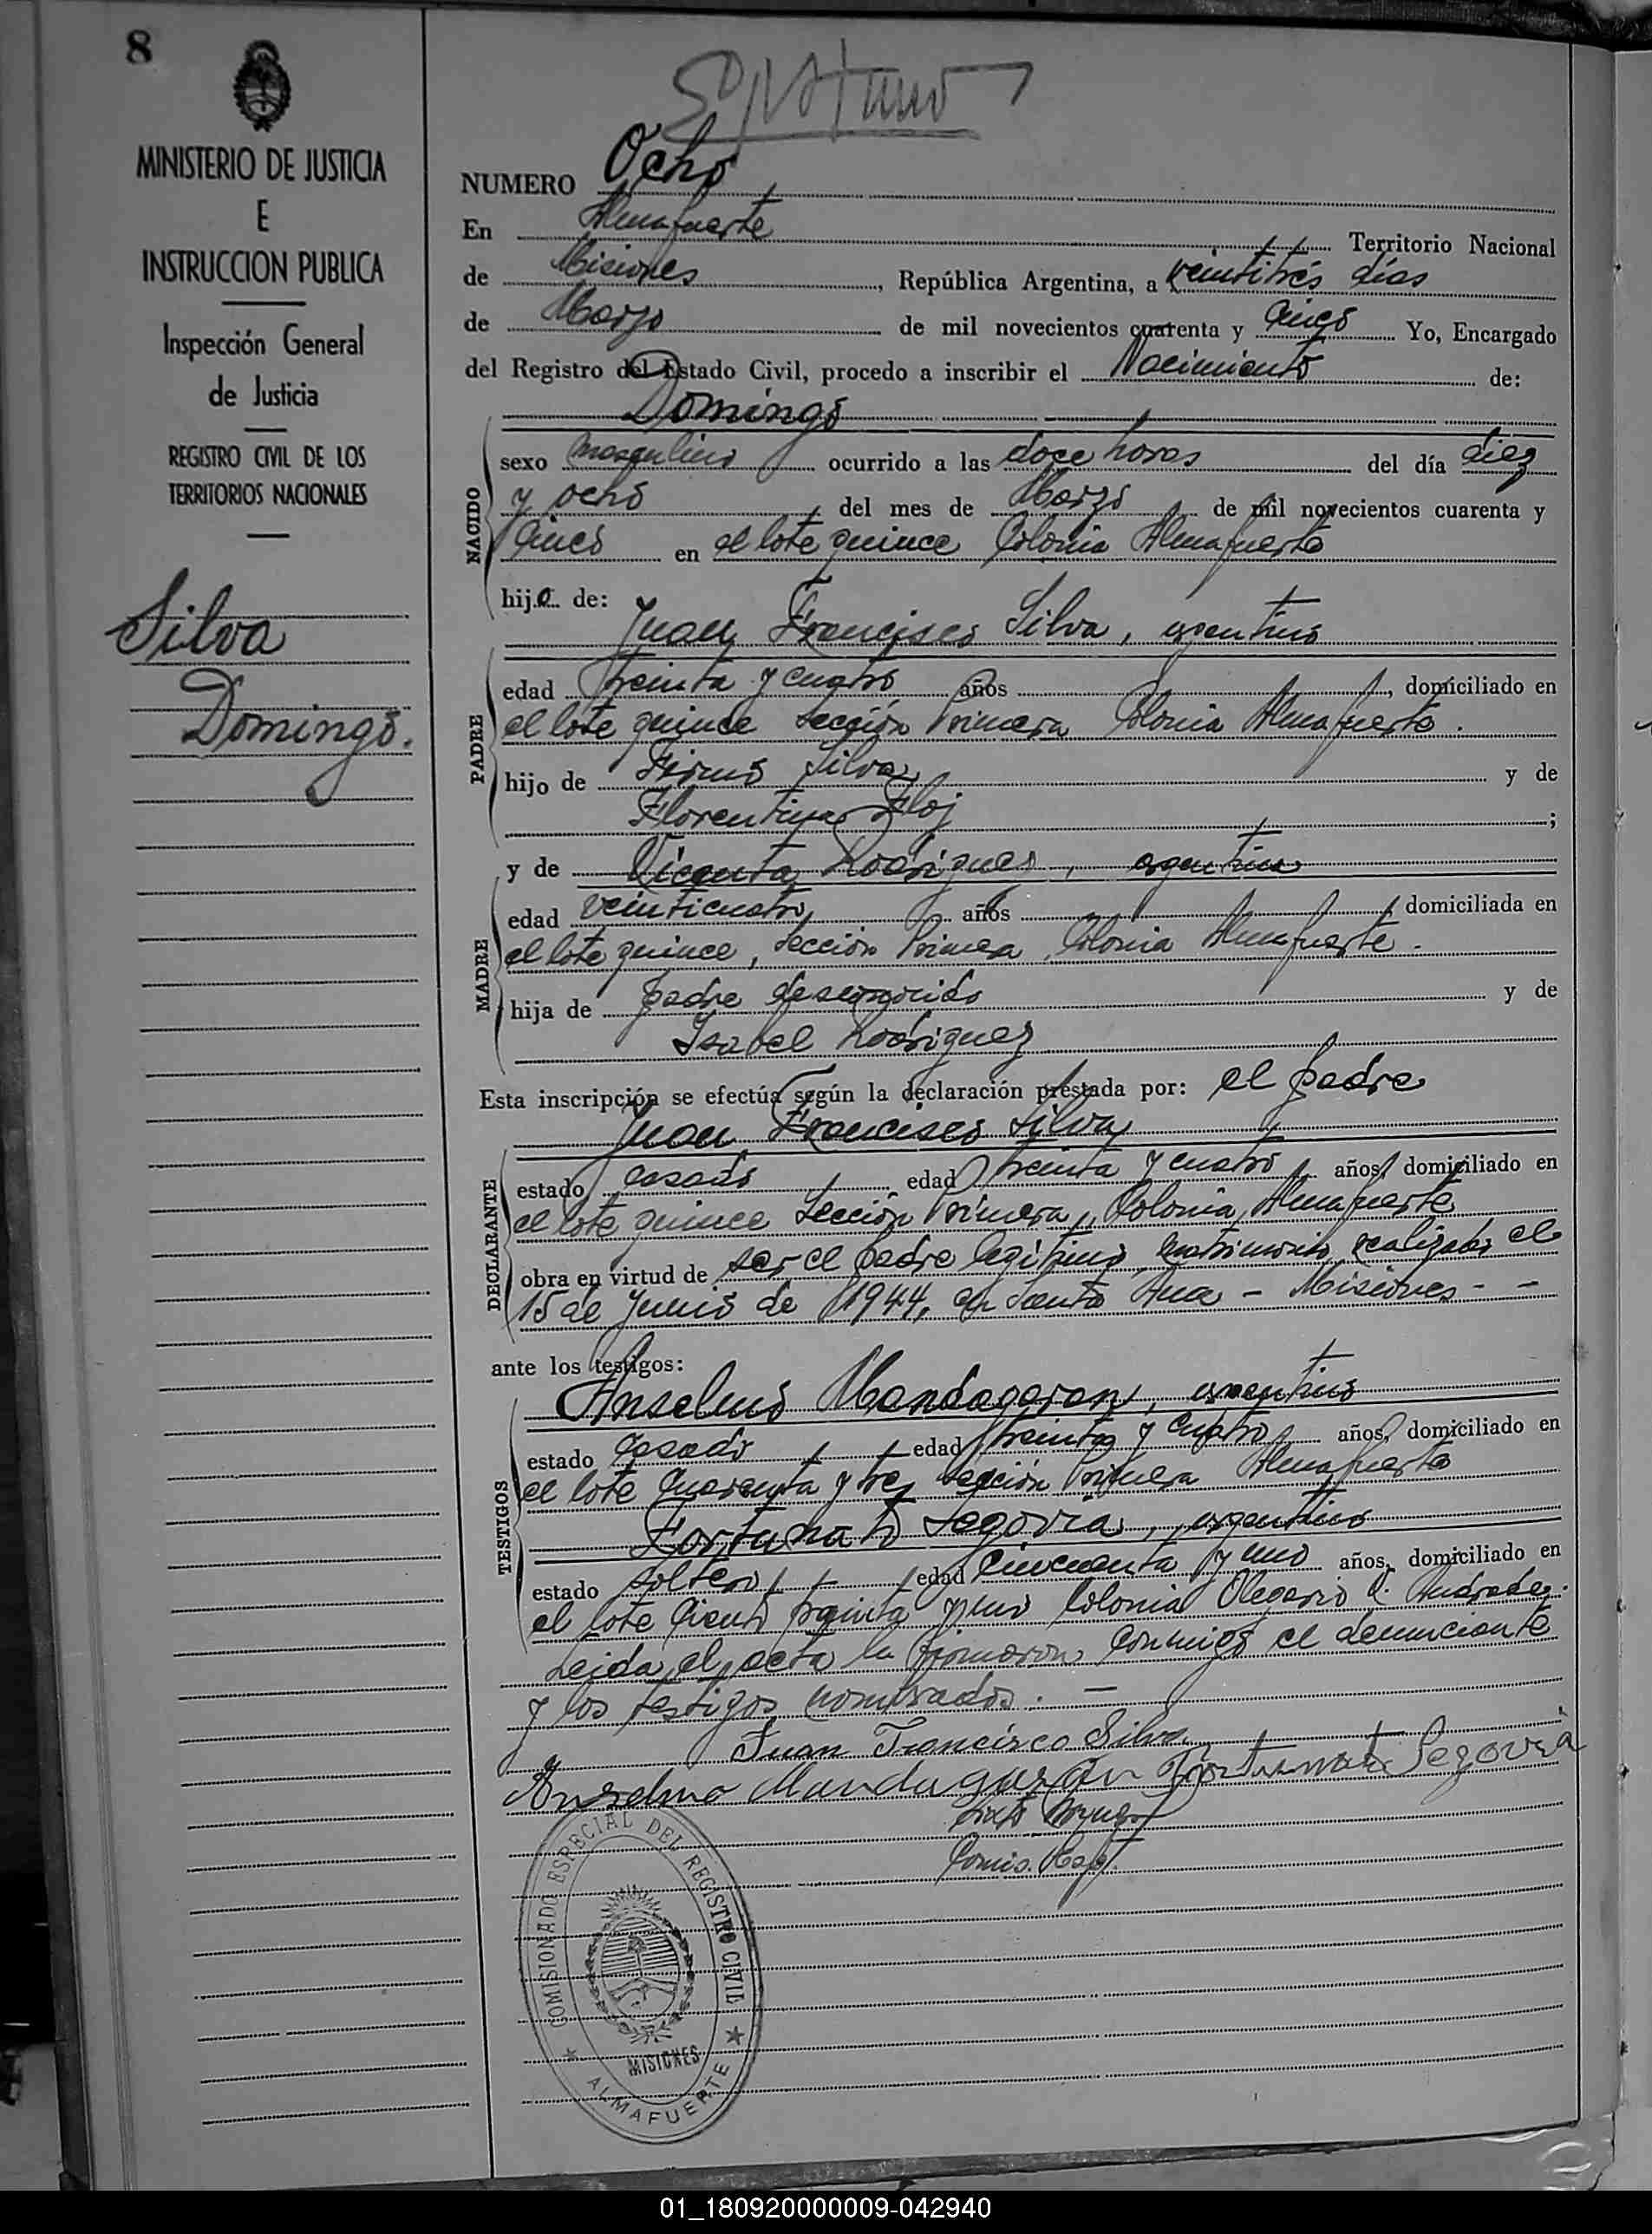 8
MINISTERIO DE JUSTICIA
E
INSTRUCCION PUBLICA
Inspección General
de Justicia
REGISTRO CIVIL DE LOS
TERRITORIOS NACIONALES
Silva
Domingo.
NUMERO Ocho
En Almafuerte Territorio Nacional
de Misiones, República Argentina, a veintitrés días
de Marzo de mil novecientos cuarenta y Cinco Yo, Encargado
del Registro del Estado Civil, procedo a inscribir el Nacimiento de:
Domingo
NACIDO
sexo masculino ocurrido a las doce horas del día diez
y ocho del mes de Marzo de mil novecientos cuarenta y
Cinco en el lote quince Colonia Almafuerte
hijo de:
Juan Francisco Silva, argentino
PADRE
edad treinta y cuatro años, domiciliado en
el lote quince Sección Primera Colonia Almafuerte.
hijo de Firmo Silva y de
Florentina ;
y de Vicenta Rodriguez, argentina
MADRE
edad veinticuatro años, domiciliada en
el lote quince, Sección Primera, Colonia Almafuerte.
hija de padre desconocido y de
Isabel Rodriguez
Esta inscripción se efectúa según la declaración prestada por: el padre
Juan Francisco Silva
DECLARANTE
estado casado edad treinta y cuatro años, domiciliado en
el lote quince Sección Primera, Colonia Almafuerte
obra en virtud de ser el padre legítimo, matrimonio realizado el
15 de Junio de 1944, en Santa Ana - Misiones - -
ante los testigos:
Anselmo Mandagaran, argentino
TESTIGOS
estado casado edad treinta y cuatro años, domiciliado en
el lote cuarenta y tres sección Primera Almafuerte
Fortunato Segovia, argentino
estado soltero edad cincuenta y uno años, domiciliado en
el lote ciento treinta y uno Colonia Olegario V. Andrade.
Leida el acta la firmaron conmigo el denunciante
y los testigos nombrados. -
Juan Francisco Silva
Anselmo Mandagarán Fortunato Segovia
COMISIONADO ESPECIAL DEL REGISTRO CIVIL
MISIONES
ALMAFUERTE
01_180920000009-042940